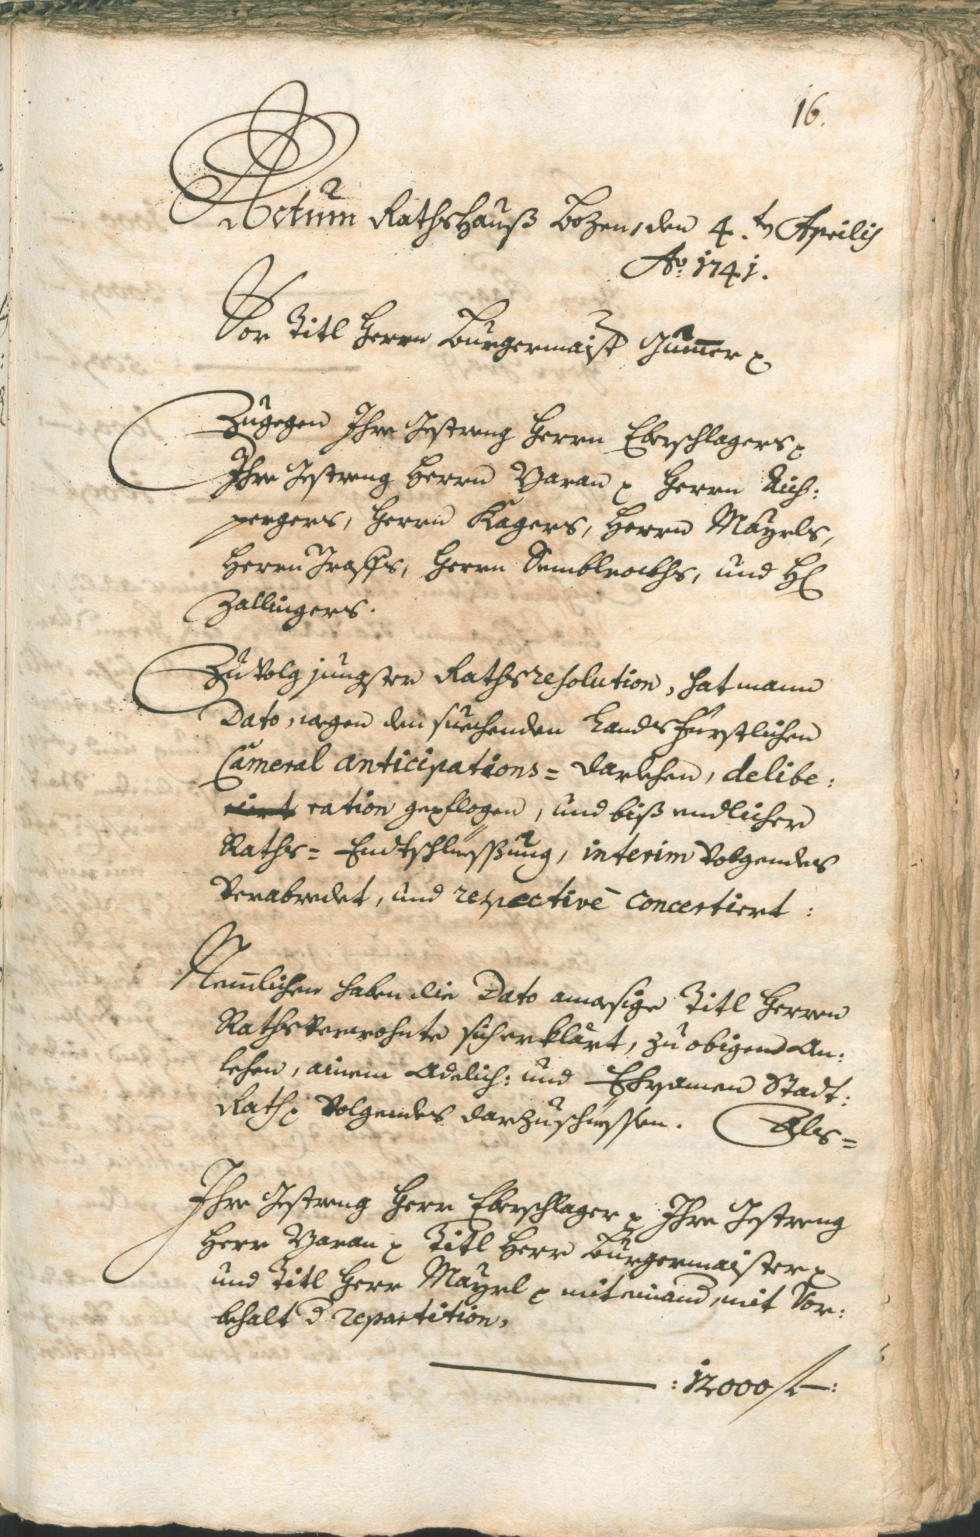 16.
Actum Rathshauß Bozen, den 4.ten Aprilis
Ao: 1741.
Vor Titl Herrn Burgermaister Gumer p
Zugegen Ihre Gestreng Herrn Eberschlagers p
Ihre Gestreng Herrn Yaran p Herrn Rich:
pergers, Herrn Kagers, Herrn Mayrls,
Herrn Grasls, Herrn Semblrockhs, und H:
Zallingers.
Zu Volg jungster Rathsresolution, hat mann
Dato, wegen den suechenden Landsfürstlichen
Cameral anticipations= Darlehen, delibe:
ration gepflogen, und biß endlicher
Raths= Endtschliessßung, interim Volgendes
Verabredet, und respective concertiert:
Nemlichen haben die Dato anwesige Titl Herren
Rathsverwohnte sich erklärt, zu obigen An:
lehen, ainem Adelich: und Ehrsamen Stadt:
Rath p Volgendes darzuschiessen. Als=
Ihre Gestreng Herr Eberschlager p Ihre Gestreng
Herr Yaran p Titl Herr Burgermaister p
und Titl Herr Mayrl p miteinand, mit Vor:
behalt d repartition,
: 12000 f —: